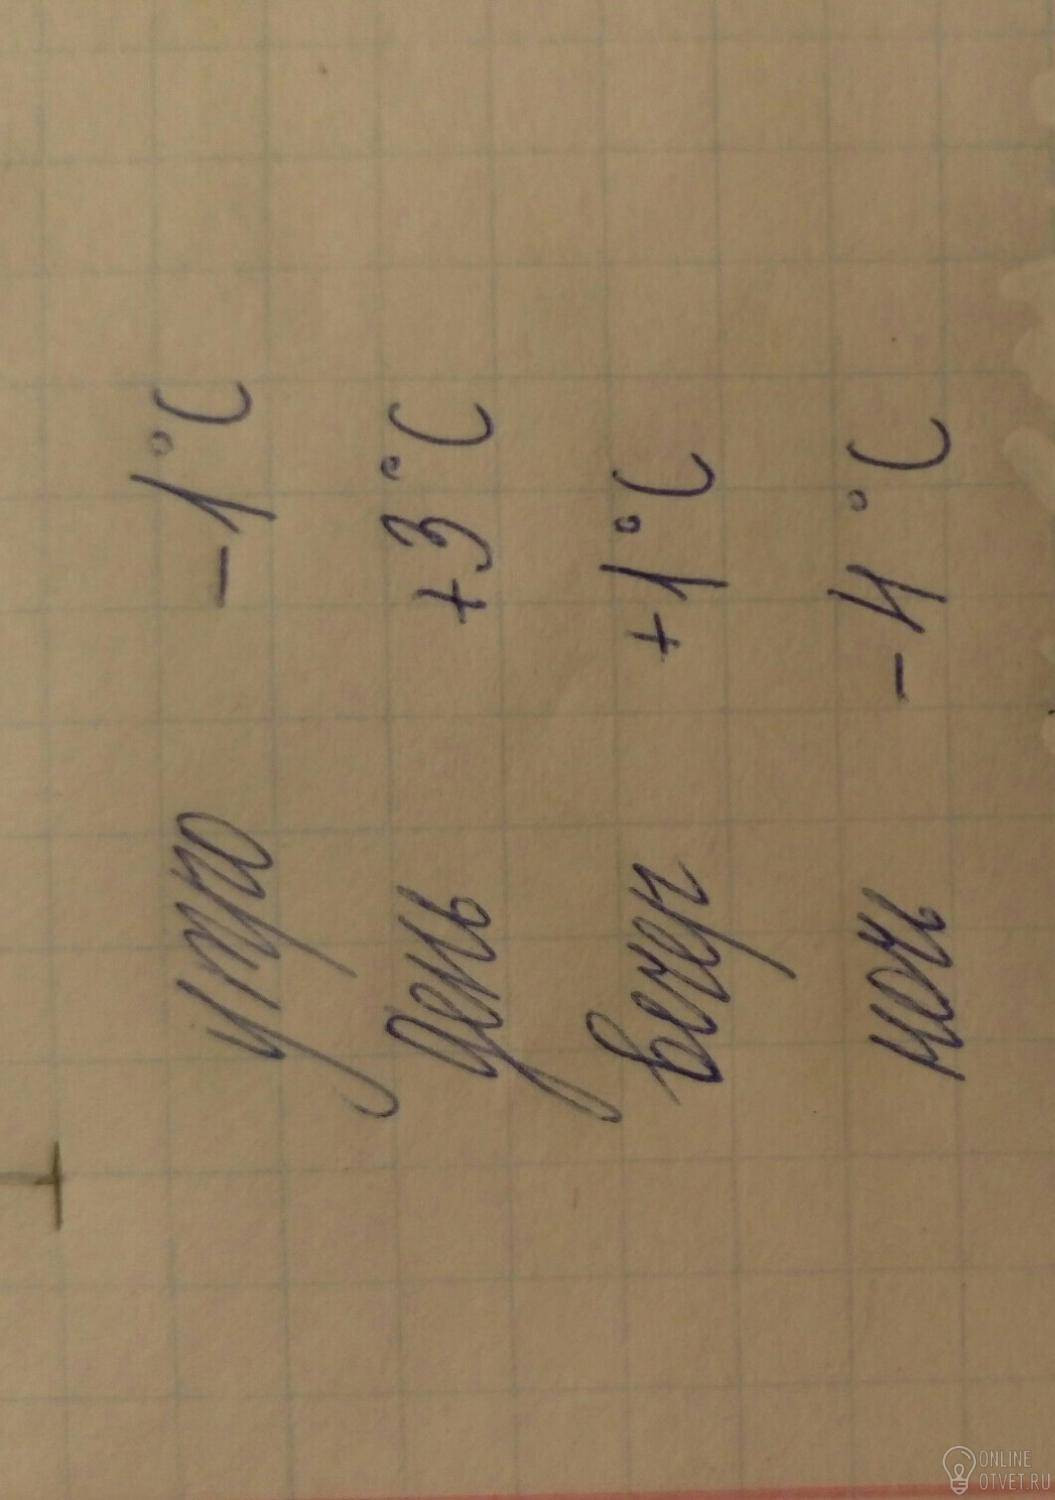 утро -1°C
день +3°C
вечер +1°C
ночь -4°C
ONLINE
OTVET.RU